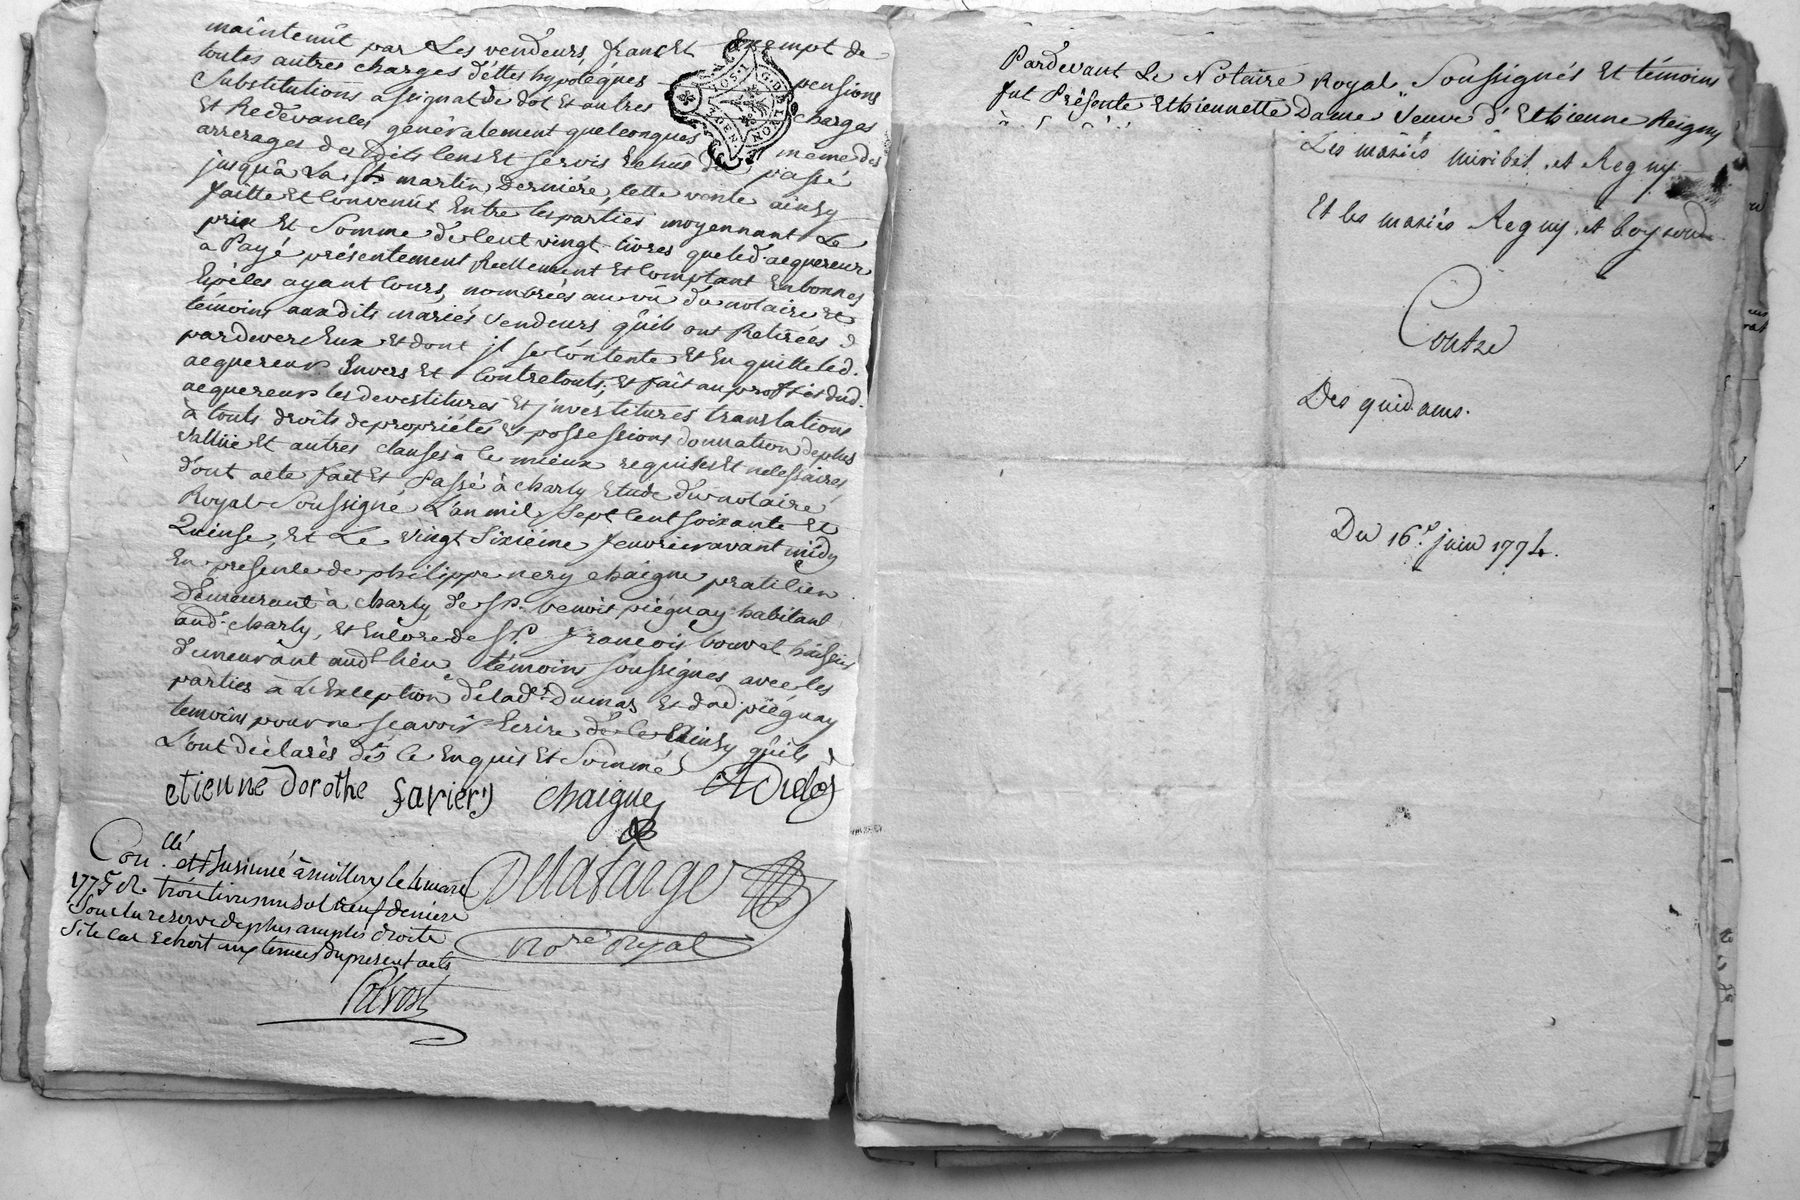 maintenût par Les vendeurs, franc Et Exempt de
toutes autres charges déttes hypotéques pensions
Substitutions assignat de dot Et autres charges
Et Redevances généralement quelconques même des
arrerages des dits Cens Et servis Echus du passé
jusqu'à La St martin Derniére, Cette vente ainsy
faitte Et Convenüe Entre les parties moyennant Le
prix Et Somme de Cent vingt livres que led. acquereur
a Payé présentement Réellement Et Comptant En bonnes
Espèces ayant Cours, nombrées au vû du notaire Et
témoins auxdits mariés Vendeurs qui les ont Retirées
pardevers Eux Et dont il se Contente Et En quitte led.
acquereur Envers Et Contre touts, Et fait au proffit dud.
acquereur les devestitures Et jnvestitures translations
à touts droits de propriétés Et possessions donnation de plus
Vallüe Et autres clauses à Ce mieux requises Et necessaires
dont acte fait Et Passé à charly Etude du notaire
Royal Soussigné L'an mil Sept Cent soixante Et
Quinse, Et Le vingt Sixiéme Jenvrier avant midy
En presence de philippe nery chaigne praticien
Demeurant à charly, de Sr. benoit piégnay habitant
aud. charly, Et Encore de Sr. françois bouvet
demeurant aud. lieu témoins soussignés avec les
parties à L'Exception de lad. Dumas Et dud. piégnay
temoins pour ne sçavoir Ecrire de Ce Ainsy qu'ils
L'ont déclarés de Ce Enquis Et Sommé
etienne dorothe favier chaigne
Delafarge
nore Royal
Con.llé et Insinué à millery le 4 mars
1775 R. trois livres un sol neuf deniers
Sous la reserve de plus amples droits
Si le Cas Echoit aux termes du present acte
Prevost
G. DE LYON
Pardevant Le Notaire Royal Soussignés Et témoins
fut Présente Ethiennette Dame Veuve d'Ethienne Reigny
Les mariés miribel et Regny
Et les mariés Regny et
Contre
Des quidams.
Du 16e. juin 1774.